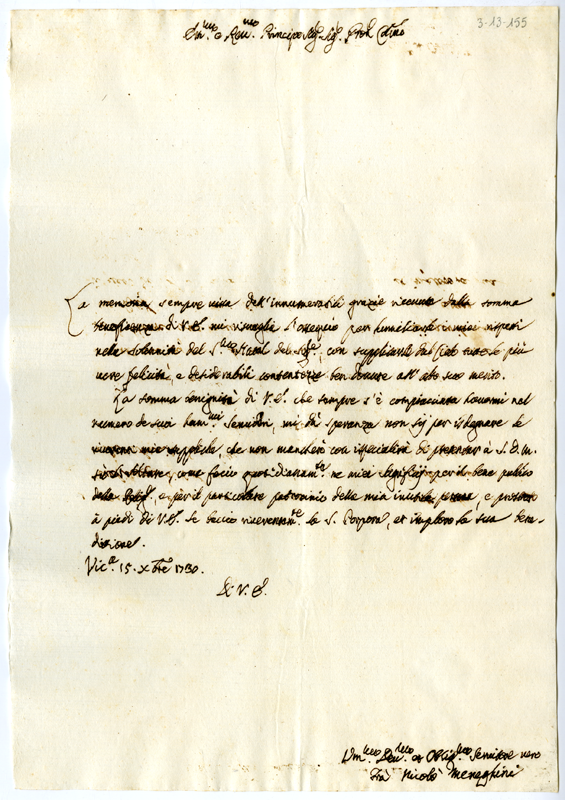 3-13-155
Em.mo e Rev.mo Principe Sig.r Sig.r Pron Col.mo
La memoria sempre viva dell'innumerabili grazie ricevute dalla somma
beneficenza di V.E. mi risveglia l'ossequio per umiliarle i miei rispetti
nella solennità del S.to Natal del Sig.re, con supplicare dal Cielo tutte le più
vere felicità, e desiderabili contentezze ben dovute all'alto suo merito.
La somma benignità di V.E. che sempre s'è compiaciuta tenermi nel
numero de suoi hum.mi Servidori, mi dà speranza non sij per isdegnare le
mie che non mancherò con specialità di presentar à S.D.M.
come faccio quotidianam.te ne miei per il bene publico
della e per il particolare patrocinio della mia inutile persona, e prostrato
à piedi di V.E. le baccio riverentem.te la S. Porpora, et imploro la sua bene-
dizione.
Vic.a 15. Xbre 1730.
Di V.E.
Um.mo Dev.mo et Oblig.mo Servitore vero
Frà Nicolò Meneghini